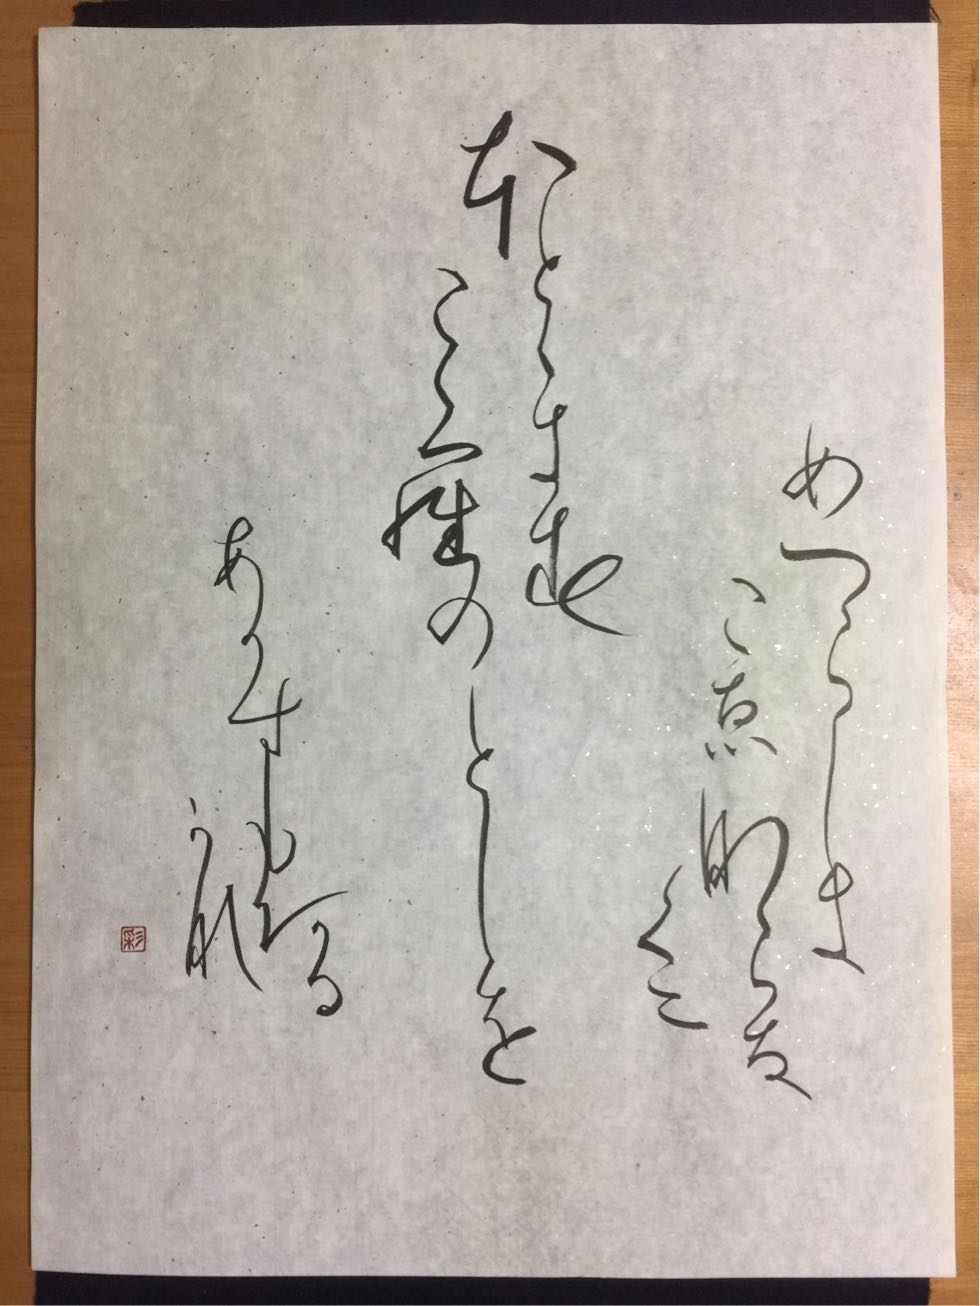 めつらしき
こゑならな
くに
ほとゝきす
こゝらのとしを
あかすもある
かな
彩